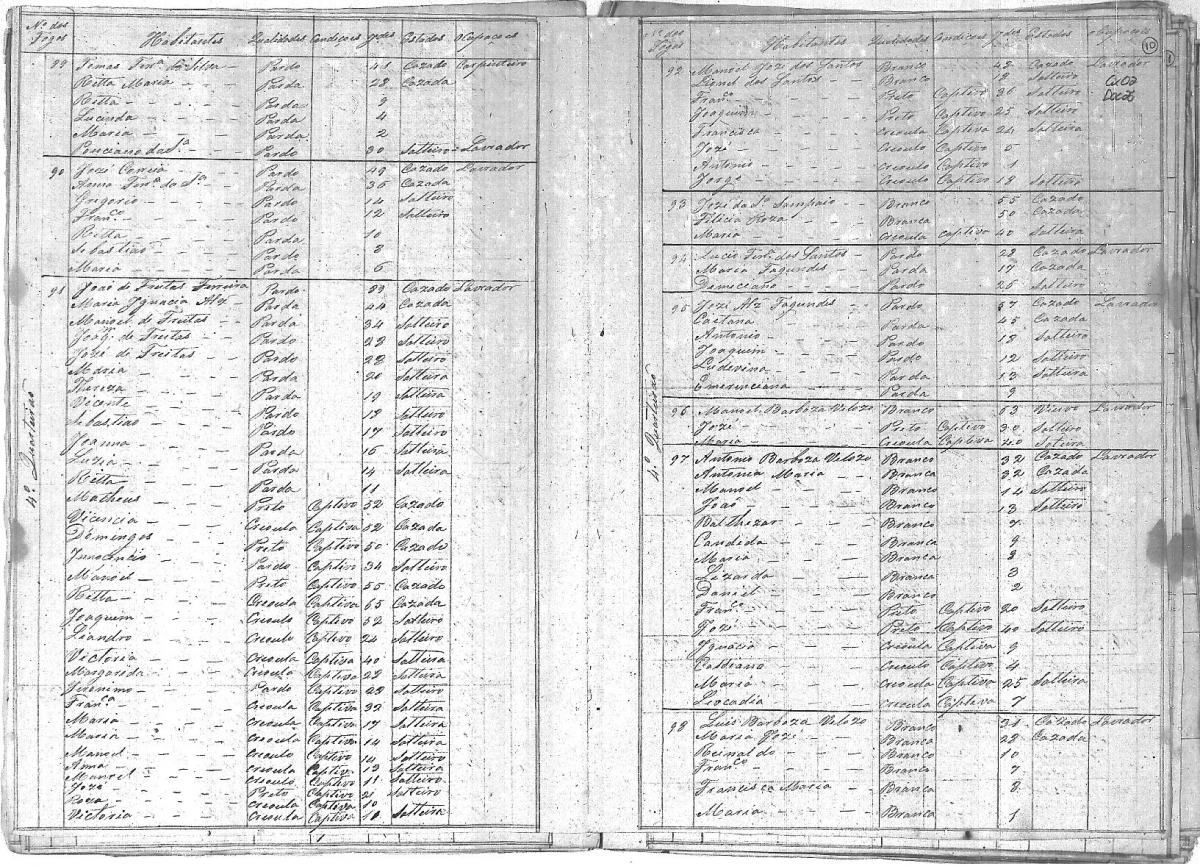 Nº dos Fogos Habitantes Qualidades Condiçoes Ydes Estados Ocupaçoes
89 Fern.º da Silva Pardo 41 Cazado Carpinteiro
Ritta Maria Parda 28 Cazada
Ritta Parda 9
Lucinda Parda 4
Maria Parda 2
Ponciano da S.ª Pardo 30 Solteiro Lavrador
90 Jozé Correia Pardo 49 Cazado Lavrador
Anna Fern.ª da S.ª Parda 36 Cazada
Grigorio Pardo 14 Solteiro
Fran.co Pardo 12 Solteiro
Ritta Parda 10
Sebastião Pardo 8
Maria Parda 6
4º Quarteirão
91 João de Freitas Ferreira Pardo 89 Cazado Lavrador
Maria Ygnacia Alz Parda 44 Cazada
Manoel de Freitas Pardo 34 Solteiro
Joaq. de Freitas Pardo 23 Solteiro
Jozé de Freitas Pardo 22 Solteiro
Maria Parda 20 Solteira
Thereza Parda 19 Solteira
Vicente Pardo 18 Solteiro
Sebastião Pardo 17 Solteiro
Joanna Parda 16 Solteira
Luzia Parda 14 Solteira
Ritta Parda 11
Matheus Preto Captivo 52 Cazado
Vicencia Creoula Captiva 52 Cazada
Domingos Preto Captivo 50 Cazado
Innocencio Pardo Captivo 34 Solteiro
Manoel Preto Captivo 55 Cazado
Ritta Creoula Captiva 55 Cazada
Joaquim Creoulo Captivo 52 Solteiro
Leandro Creoulo Captivo 24 Solteiro
Victoria Creoula Captiva 40 Solteira
Margarida Creoula Captiva 23 Solteira
Jeronimo Pardo Captivo 22 Solteiro
Fran.ca Creoula Captiva 32 Solteira
Maria Creoula Captiva 17 Solteira
Maria Creoula Captiva 14 Solteira
Manoel Creoulo Captivo 14 Solteiro
Anna Creoula Captiva 12 Solteira
Manoel Creoulo Captivo 11 Solteiro
Jozé Preto Captivo 21 Solteiro
Roza Creoula Captiva 10
Victoria Creoula Captiva 10 Solteira
Nº dos Fogos Habitantes Qualidades Condiçoes Ydes Estados Ocupaçoes
10
92 Manoel Jozé dos Santos Branco 42 Cazado Lavrador
Lionel dos Santos Branco 12 Solteiro
Fran.co Preto Captivo 36 Solteiro
Joaquim Preto Captivo 25 Solteiro
Francisca Creoula Captiva 24 Solteira
Jozé Creoulo Captivo 5
Antonio Creoulo Captivo 1
Jorge Creoulo Captivo 18 Solteiro
93 Jozé da S.ª Sampaio Branco 55 Cazado
Filicia Roza Branca 50 Cazada
Maria Creoula Captiva 40 Solteira
94 Lucio Fern.z dos Santos Pardo 23 Cazado Lavrador
Maria Fagundes Parda 17 Cazada
Demiciano Pardo 25 Solteiro
4º Quarteirão
95 Jozé Alz Fagundes Pardo 57 Cazado Lavrador
Caetana Parda 45 Cazada
Antonio Pardo 18 Solteiro
Joaquim Pardo 12 Solteiro
Ludevina Parda 13 Solteira
Emerenciana Parda 9
96 Manoel Barboza Velozo Branco 53 Viuvo Lavrador
Jozé Preto Captivo 30 Solteiro
Maria Creoula Captiva 40 Soteira
97 Antonio Barboza Velozo Branco 32 Cazado Lavrador
Antonia Maria Branca 32 Cazada
Manoel Branco 14 Solteiro
João Branco 13 Solteiro
Balthezar Branco 7
Candida Branca 9
Maria Branca 8
Lizarda Branca 3
Daniel Branco 2
Fran.co Preto Captivo 20 Solteiro
Jozé Preto Captivo 40 Solteiro
Ygnacia Creoula Captiva 9
Cassiano Creoulo Captivo 4
Maria Creoula Captiva 25 Solteira
Leocadia Creoula Captiva 7
98 Luis Barboza Velozo Branco 31 Cazado Lavrador
Maria Jozé Branca 22 Cazada
Reinaldo Branco 10
Fran.ca Branca 7
Francisca Maria Branca 2
Maria Branca 1